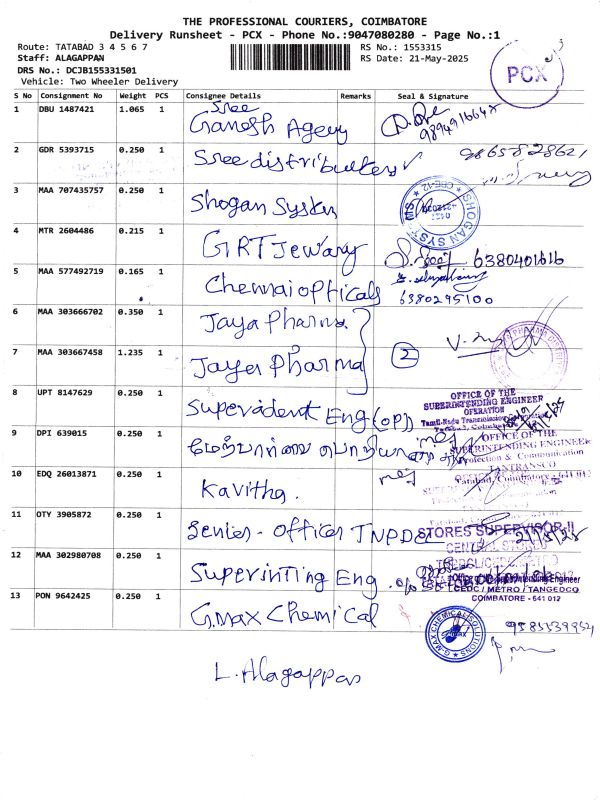 THE PROFESSIONAL COURIERS, COIMBATORE
Delivery Runsheet - PCX - Phone No.:9047080280 - Page No.:1
Route: TATABAD 3 4 5 6 7
RS No.: 1553315
Staff: ALAGAPPAN
RS Date: 21-May-2025
DRS No.: DCJB155331501
Vehicle: Two Wheeler Delivery
PCX
S No Consignment No Weight PCS Consignee Details Remarks Seal & Signature
1 DBU 1487421 1.065 1 Sree Ganesh Agency
2 GDR 5393715 0.250 1 Sree distributers 9865828621
3 MAA 707435757 0.250 1 Shogan System
SHOGAN SYSTEMS
4 MTR 2604486 0.215 1 GRT Jewary 6380401616
5 MAA 577492719 0.165 1 Chennai opticals 6380295100
6 MAA 303666702 0.350 1 Jaya Pharma
7 MAA 303667458 1.235 1 Jayer Pharma 2
8 UPT 8147629 0.250 1 Supervident Eng (OP)
OFFICE OF THE
SUPERINTENDING ENGINEER
OPERATION
9 DPI 639015 0.250 1
OFFICE OF THE
SUPERINTENDING ENGINEER
Protection & Communication
TANTRANSCO
Tatabad, Coimbatore - 641 012
10 EDQ 26013871 0.250 1 Kavitha.
11 OTY 3905872 0.250 1 Senier - Officer TNPDC
STORES SUPERVISOR-II
CENTRAL STORES
12 MAA 302980708 0.250 1 Superinting Eng.
CEDC / METRO / TANGEDCO
COIMBATORE - 641 012
13 PON 9642425 0.250 1 G.max Chemical
G.MAX CHEMICAL SOLUTIONS
L. Alagappan